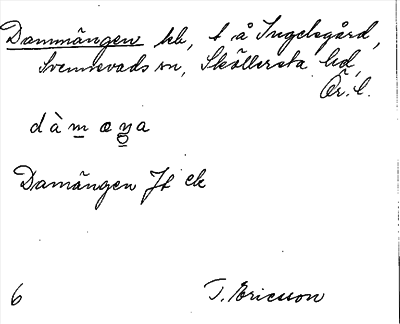 Dammängen hk, t å Ingelsgård,
Svennevads sn, Sköllersta hd,
Ör. l.
dàm æŋa
Damängen Jf ek
6 T. Ericsson